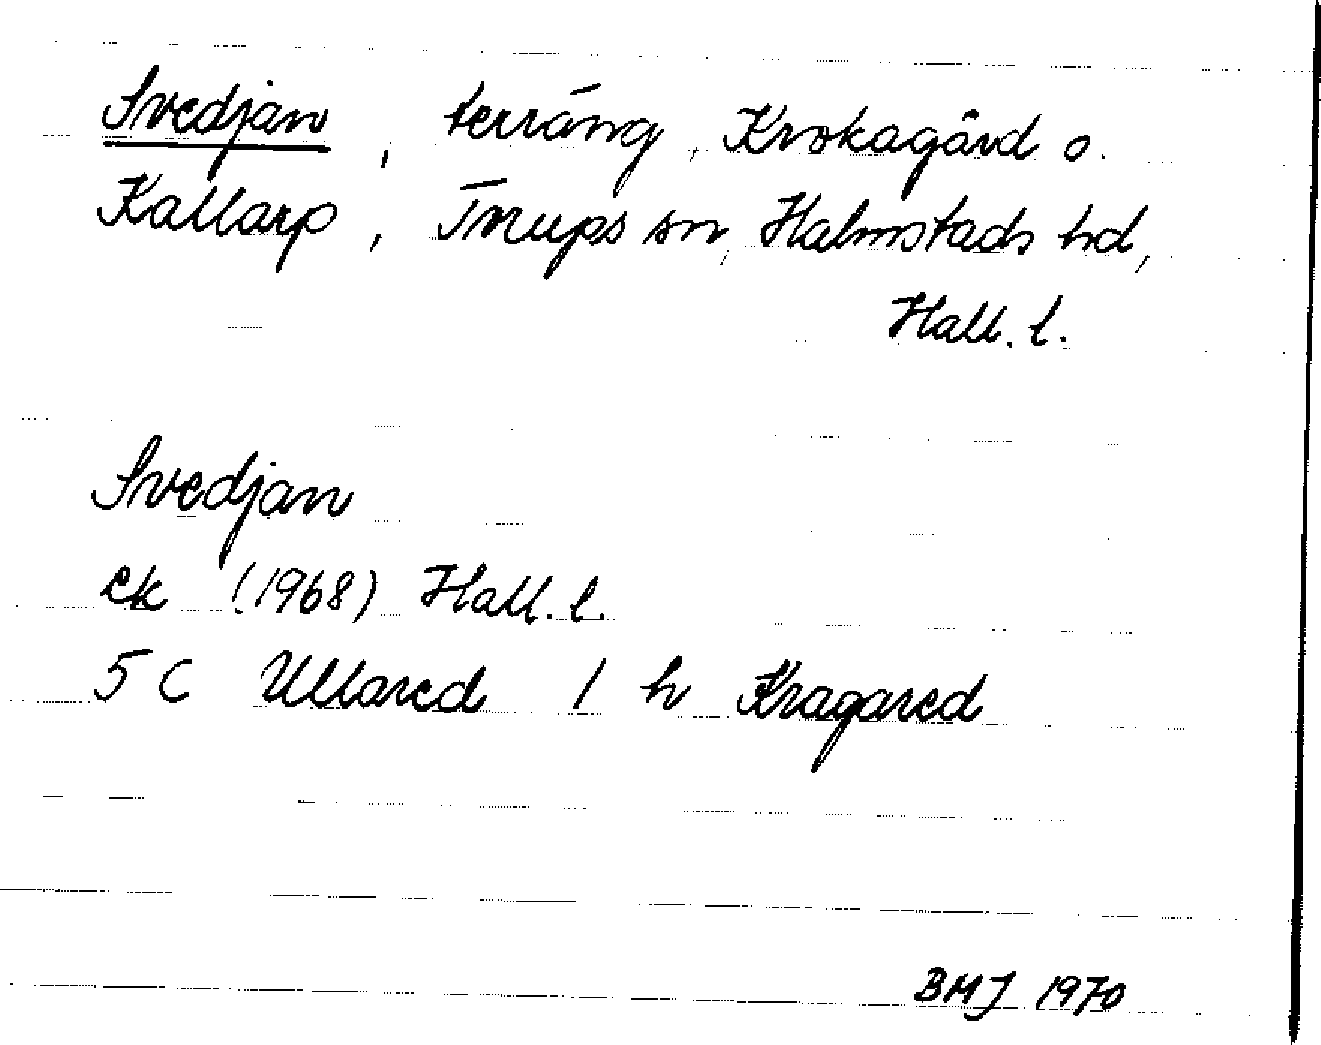 Svedjan, terräng, Krokagård o.
Kallarp, Tnups sn, Halmstads hd,
Hall. l.
Svedjan
ek (1968) Hall. l.
5 C Ullared 1 h Kragared
BMJ 1970